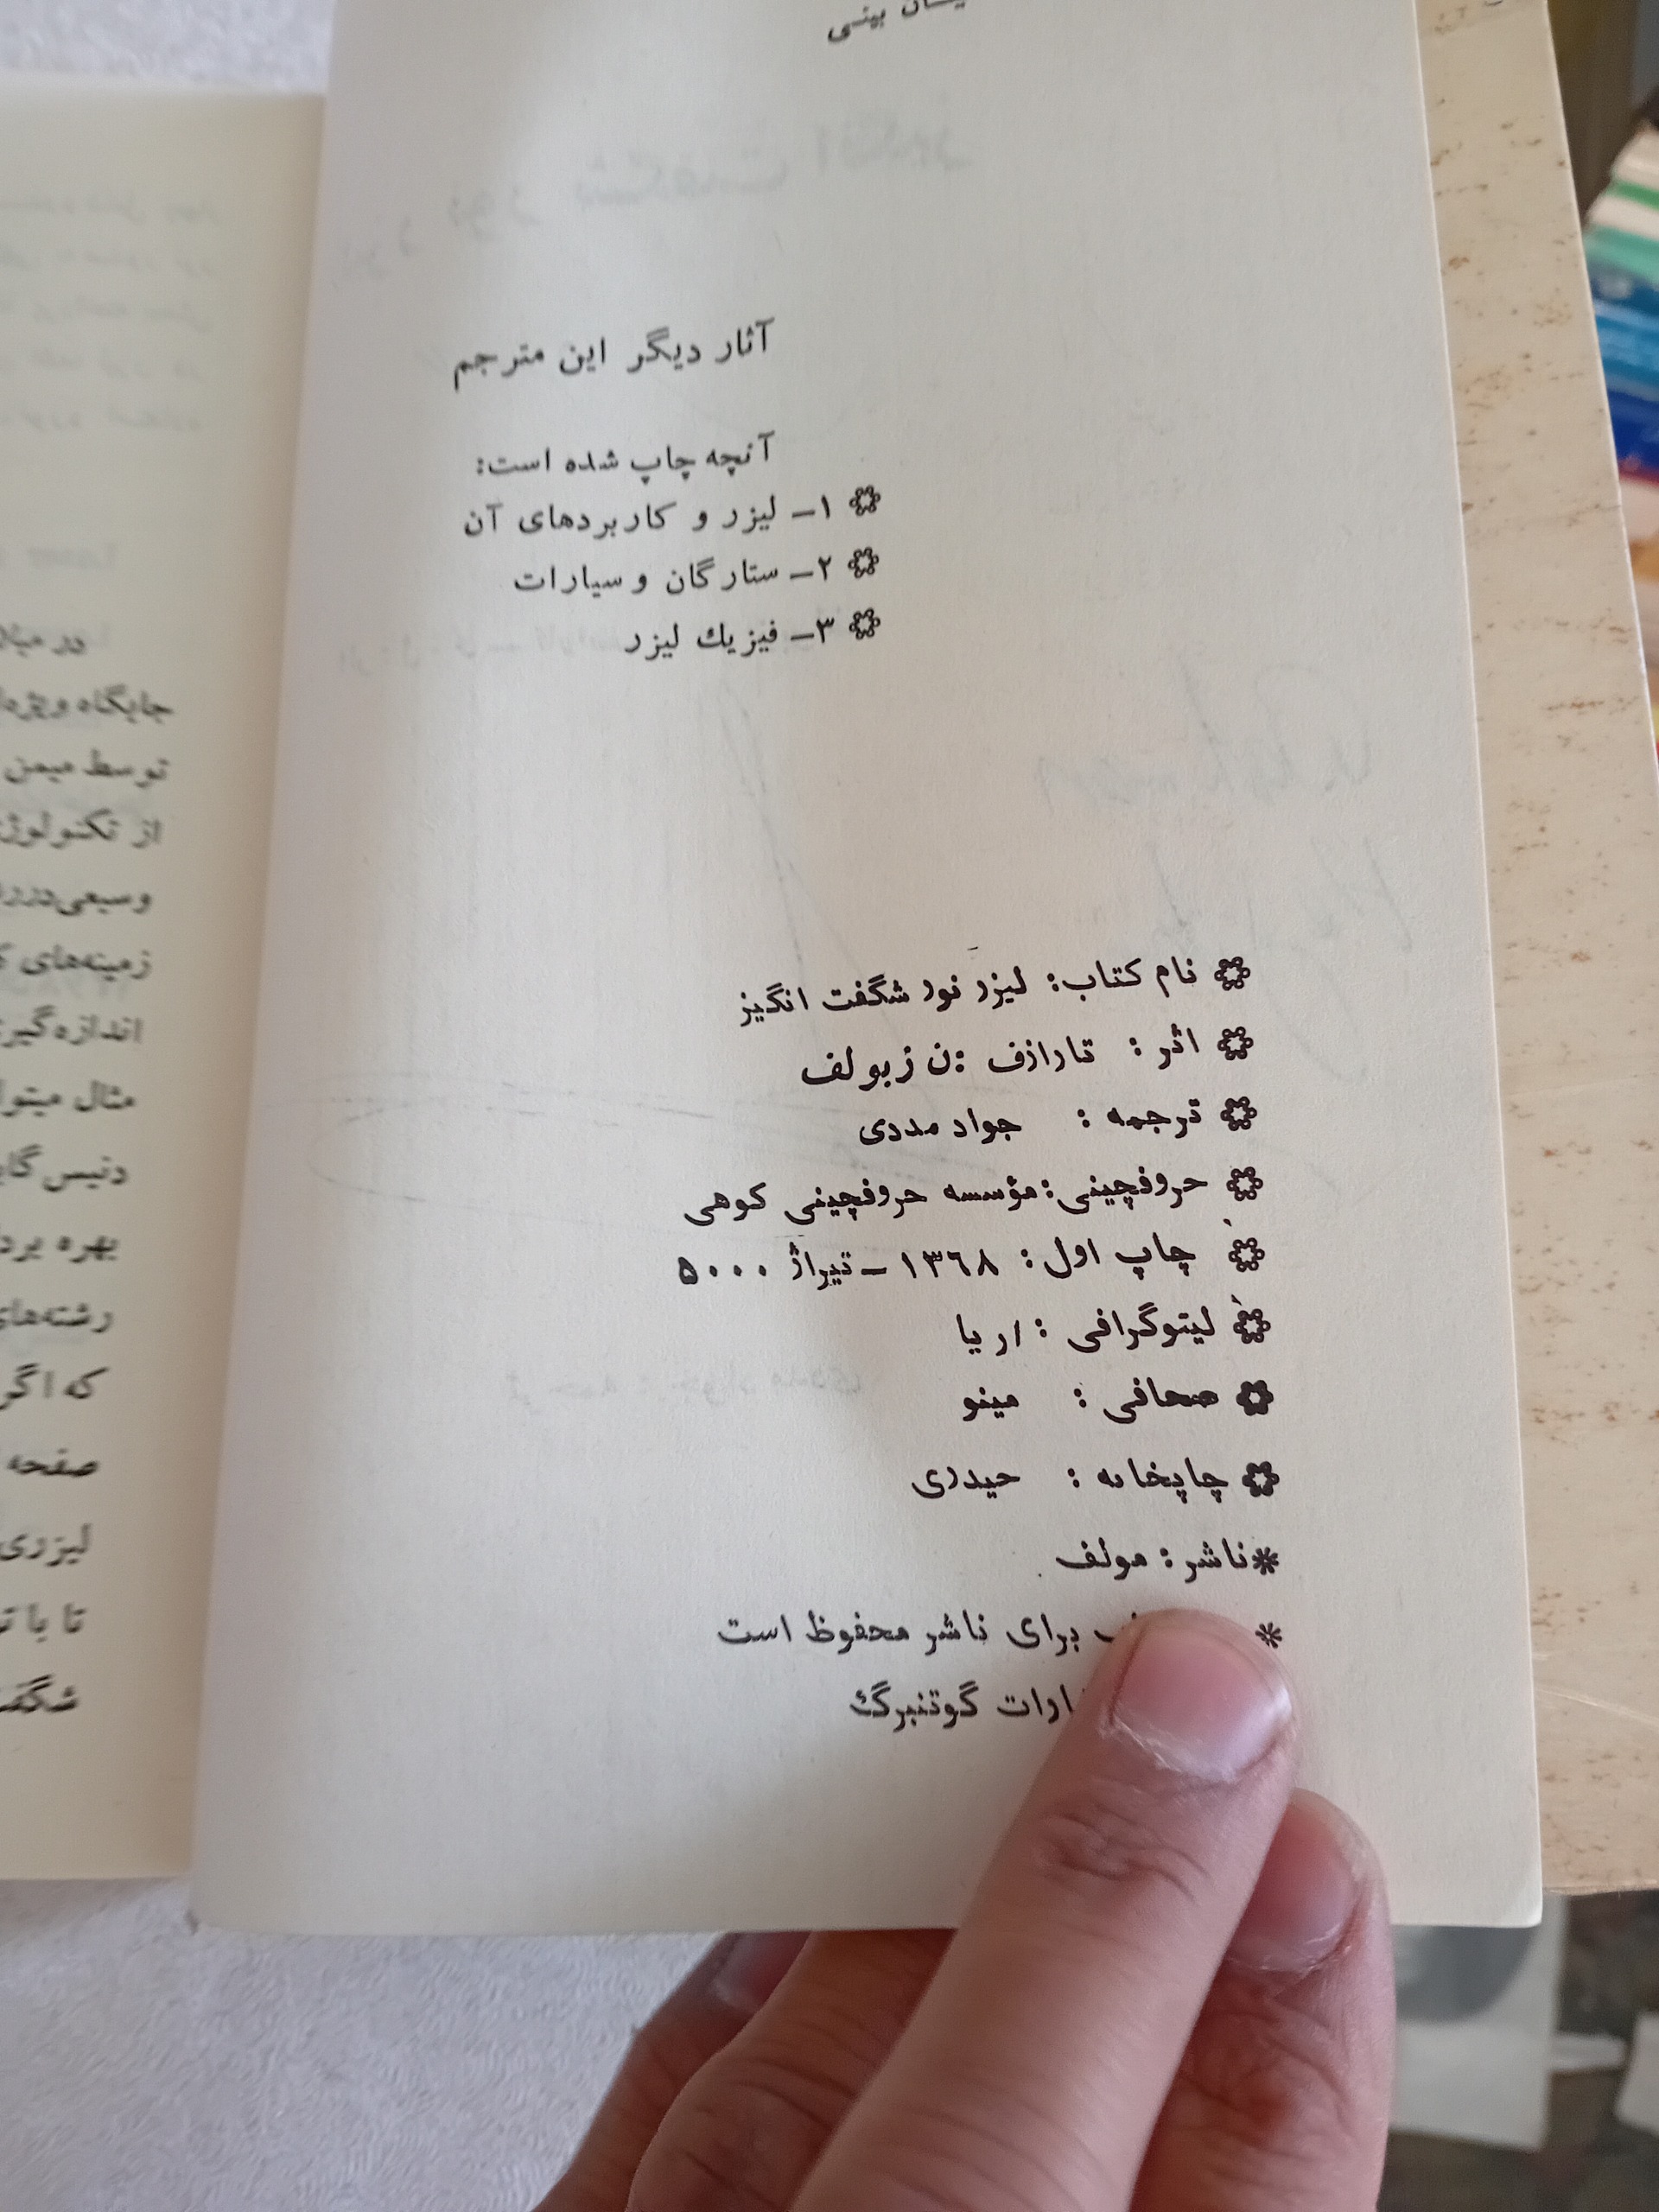 بینی
آثار دیگر این مترجم
آنچه چاپ شده است:
۱ــ لیزر و کاربردهای آن
۲ــ ستارگان و سیارات
۳ــ فیزیك لیزر
نام کتاب: لیزر نور شگفت انگیز
اثر : تارازف :ن زبولف
ترجمه : جواد مددی
حروفچینی: مؤسسه حروفچینی کوهی
چاپ اول: ۱۳٦۸ ــ تیراژ ۵۰۰۰
لیتوگرافی : اریا
صحافی : مینو
چاپخانه : حیدری
*ناشر: مولف
* برای ناشر محفوظ است
گوتنبرگ
جایگاه
توسط میمن
از
زمینه‌های
مثال
دنیس
بهره
که اگر
صفحه
لیزری
تا با